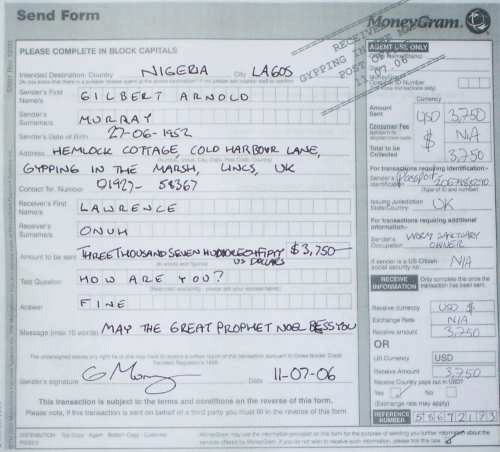 Send Form
MoneyGram.
PLEASE COMPLETE IN BLOCK CAPITALS
RECEIVED
GYPPING IN THE MARSH
POST OFFICE
11 07 06
AGENT USE ONLY
Intended Destination: Country NIGERIA City LAGOS
Sender's First Name/s GILBERT ARNOLD
Sender's Surname/s MURRAY
Sender's Date of Birth 27-06-1952
Address HEMLOCK COTTAGE, COLD HARBOUR LANE,
GYPPING IN THE MARSH, LINCS, UK
Contact Tel. Number 01927- 58367
Receiver's First Name/s LAWRENCE
Receiver's Surname/s ONUH
Amount to be sent THREE THOUSAND SEVEN HUNDRED & FIFTY $3,750
US DOLLARS
Test Question HOW ARE YOU?
Answer FINE
Message (max 10 words) MAY THE GREAT PROPHET NOEL BLESS YOU
Sender's signature Date 11-07-06
This transaction is subject to the terms and conditions on the reverse of this form.
Please note, if this transaction is sent on behalf of a third party you must fill in the reverse of this form.
Currency
Amount Sent USD 3,750
Consumer Fee $ N/A
Total to be Collected 3,750
For transactions requiring identification:
Sender's Identification Passport
Issuing Jurisdiction State/Country UK
For transactions requiring additional information:
Sender's Occupation WORM SANCTUARY OWNER
If sender is a US Citizen social security no. N/A
RECEIVE INFORMATION
Only complete once the transaction has been sent.
Receive currency USD $
Exchange Rate N/A
Receive amount 3,750
OR
US Currency USD
Receive Amount 3,750
Receive Country pays out in USD?
Yes No
(Exchange rate may apply)
REFERENCE NUMBER 55672173
DISTRIBUTION: Top Copy - Agent Bottom Copy - Customer
MoneyGram may use the information provided on this form for the purpose of sending you further information about the
services offered by MoneyGram. If you do not wish to receive such information, please tick this box